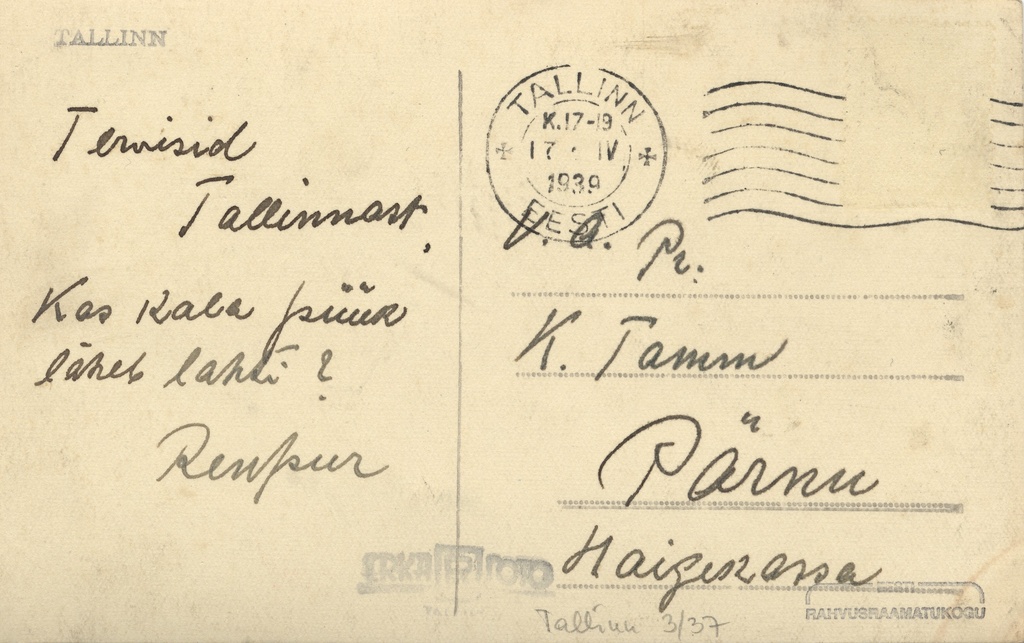 TALLINN
Tervisid
Tallinnast.
Kas kala püük
läheb lahti?
TALLINN
K.17-19
17 IV
1939
EESTI
V. A. Pr.
K. Tamm
Pärnu
Haigekassa
FOTO
TALLINN
Tallinn 3/37
RAHVUSRAAMATUKOGU